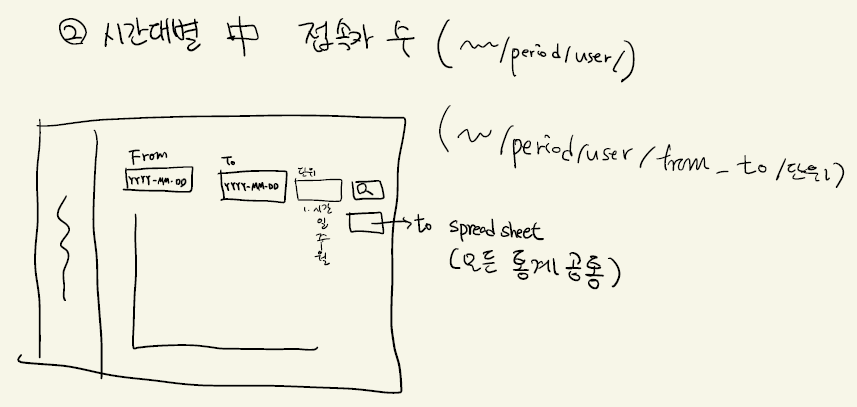 ② 시간대별 中 접속자 수 (~/period/user/)
(~/period/user/from_to/단위)
From
To
단위
YYYY-MM-DD
YYYY-MM-DD
1. 시간
일
주
월
to spreadsheet
(모든 통계 공통)